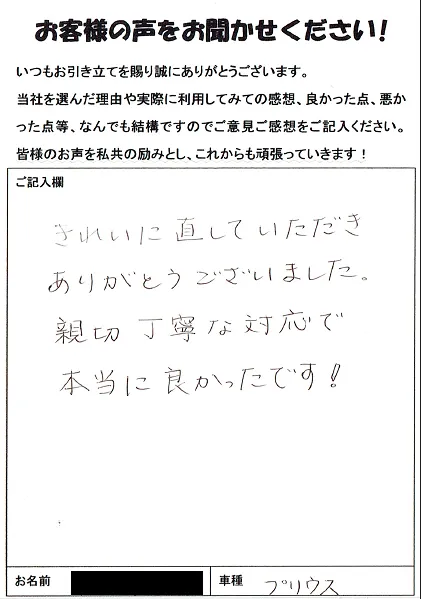 お客様の声をお聞かせください!
いつもお引き立てを賜り誠にありがとうございます。
当社を選んだ理由や実際に利用してみての感想、良かった点、悪か
った点等、なんでも結構ですのでご意見ご感想をご記入ください。
皆様のお声を私共の励みとし、これからも頑張っていきます!
ご記入欄
きれいに直していただき
ありがとうございました。
親切丁寧な対応で
本当に良かったです!
お名前
車種 プリウス